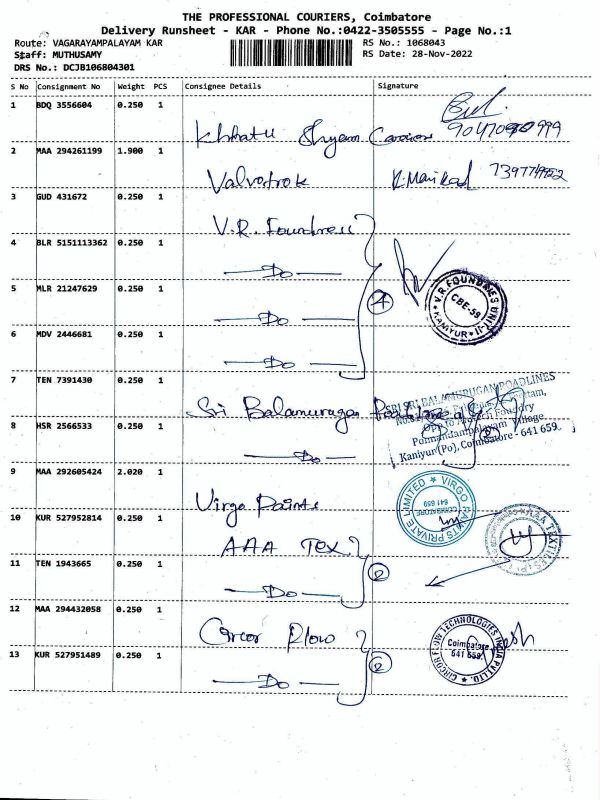 THE PROFESSIONAL COURIERS, Coimbatore
Delivery Runsheet - KAR - Phone No.:0422-3505555 - Page No.:1
Route: VAGARAYAMPALAYAM KAR
RS No.: 1068043
Staff: MUTHUSAMY
RS Date: 28-Nov-2022
DRS No.: DCJB106804301
S No Consignment No Weight PCS Consignee Details Signature
1 BDQ 3556604 0.250 1
Khhatu Shyam Carriers
2 MAA 294261199 1.900 1
Valvotrok
3 GUD 431672 0.250 1
V.R. Foundress
4 BLR 5151113362 0.250 1
Do
5 MLR 21247629 0.250 1
Do
4
V.R. FOUNDRIES UNIT-II
CBE-59
KANIYUR
6 MDV 2446681 0.250 1
Do
7 TEN 7391430 0.250 1
Sri Balamurugan
SRI SRI BALAMURUGAN ROADLINES
8 HSR 2566533 0.250 1
Foundry
Ponnandampalayam Village
Kaniyur(Po), Coimbatore - 641 659.
Do
9 MAA 292605424 2.020 1
Virgo Paints
VIRGO PAINTS PRIVATE LIMITED
COIMBATORE
641 659
10 KUR 527952814 0.250 1
AAA Tex
11 TEN 1943665 0.250 1
Do
2
12 MAA 294432058 0.250 1
Circor Flow
CIRCOR FLOW TECHNOLOGIES INDIA PVT.LTD.
Coimbatore
641 659.
13 KUR 527951489 0.250 1
Do
2